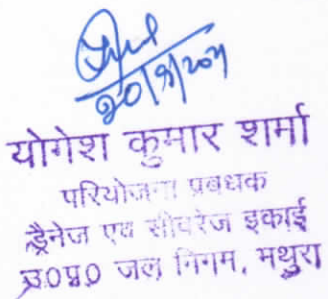 योगेश कुमार शर्मा
परियोजना प्रबधक
ड्रैनेज एव सीवरेज इकाई
उ०प्र० जल निगम, मथुरा